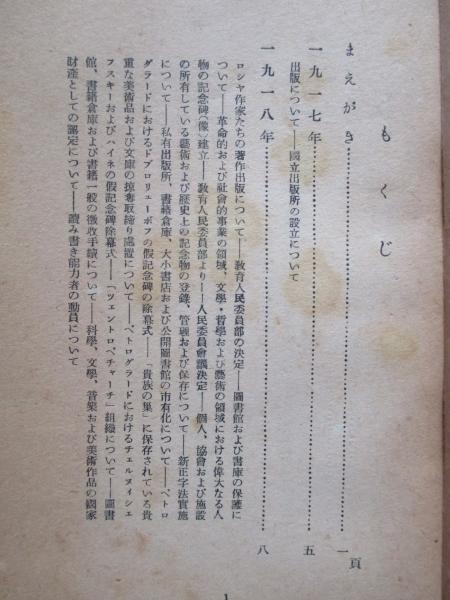 もくじ
まえがき……………………一頁
一九一七年……………………五
出版について――國立出版所の設立について
一九一八年……………………八
ロシヤ作家たちの著作出版について――敎育人民委員部の決定――圖書館および書庫の保護に
ついて――革命的および社會的事業の領域、文學・哲學および藝術の領域における偉大なる人
物の記念碑(像)建立――敎育人民委員部より――人民委員會議決定――個人、協會および施設
の所有している藝術および歷史上の記念物の登錄、管理および保存について――新正字法實施
について――私有出版所、書籍倉庫、大小書店および公開圖書館の市有化について――ペトロ
グラードにおけるドブロリューボフの假記念碑の除幕式――「貴族の巢」に保存されている貴
重な美術品および文庫の掠奪取締り處置について――ペトログラードにおけるチェルヌィシェ
フスキーおよびハイネの假記念碑除幕式――「ツェントロペチャーチ」組織について――圖書
館、書籍倉庫および書籍一般の徵收手續について――科學、文學、音樂および美術作品の國家
財產としての認定について――讀み書き能力者の動員について
1